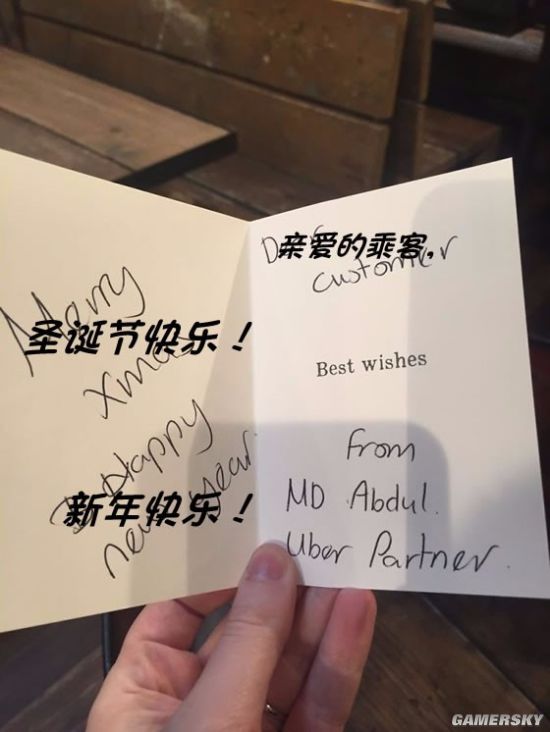 Merry
圣诞节快乐！
Xmas
Happy
新年快乐！
new year.
亲爱的乘客,
customer
Best wishes
From
MD Abdul.
Uber Partner.
GAMERSKY